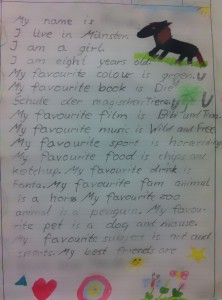 My name is
I live in Münster.
I am a girl.
I am eight years old.
My favourite colour is green.
My favourite book is Die
Schule der magischen Tiere
My favourite film is Bibi und Tina.
My favourite music is Wild and Free
My favourite sport is horseriding
My favourite food is chips and
ketchup. My favourite drink is
Fanta. My favourite farm animal
is a horse My favourite zoo
animal is a penguin. My favou-
rite pet is a dog and mouse.
My favourite subject is art and
sports. My best friends are